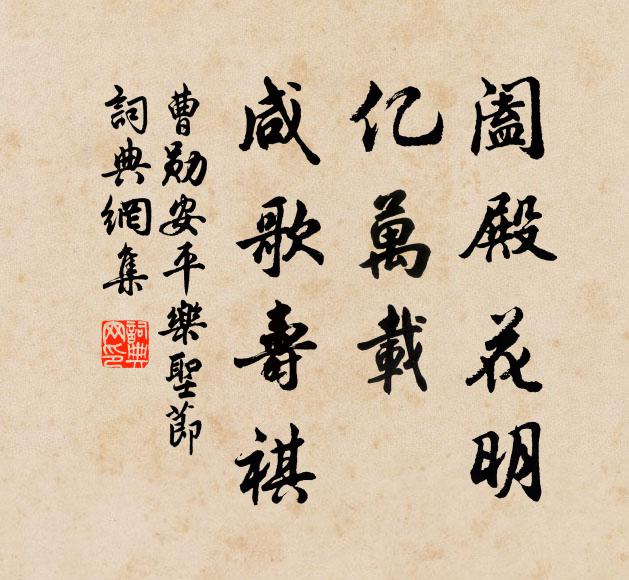 阖殿花明
亿萬載
咸歌壽祺
曹勋安平樂聖節
詞典網集
詞典网印